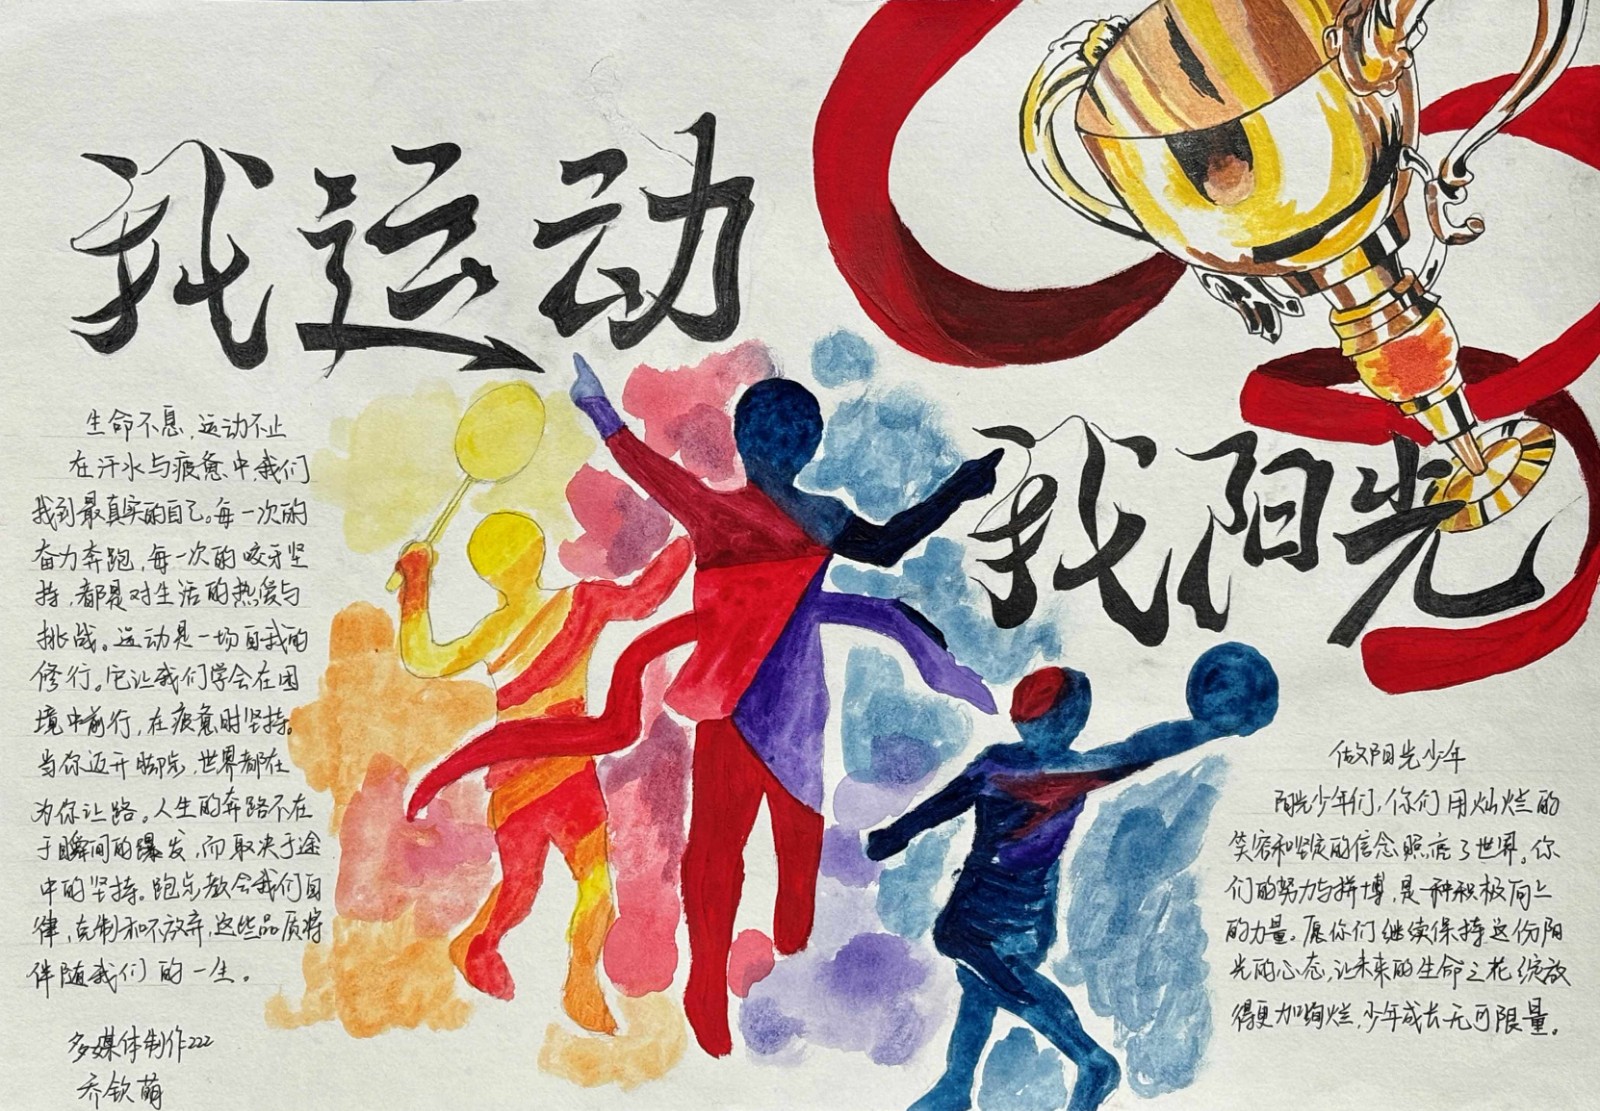 我运动
我阳光
生命不息，运动不止
在汗水与疲惫中，我们
找到最真实的自己。每一次的
奋力奔跑，每一次的咬牙坚
持，都是对生活的热爱与
挑战。运动是一场自我的
修行。它让我们学会在困
境中前行，在疲惫时坚持。
当你迈开脚步，世界都在
为你让路。人生的奔路不在
于瞬间的爆发，而取决于途
中的坚持。跑步教会我们自
律，克制和不放弃，这些品质将
伴随我们的一生。
多媒体制作222
乔钦萌
做阳光少年
阳光少年们，你们用灿烂的
笑容和坚定的信念照亮了世界。你
们的努力与拼搏，是一种积极向上
的力量。愿你们继续保持这份阳
光的心态，让未来的生命之花绽放
得更加绚烂，少年成长无可限量。